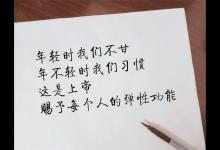 年轻时我们不甘
年不轻时我们习惯
这是上帝
赐予每个人的弹性功能